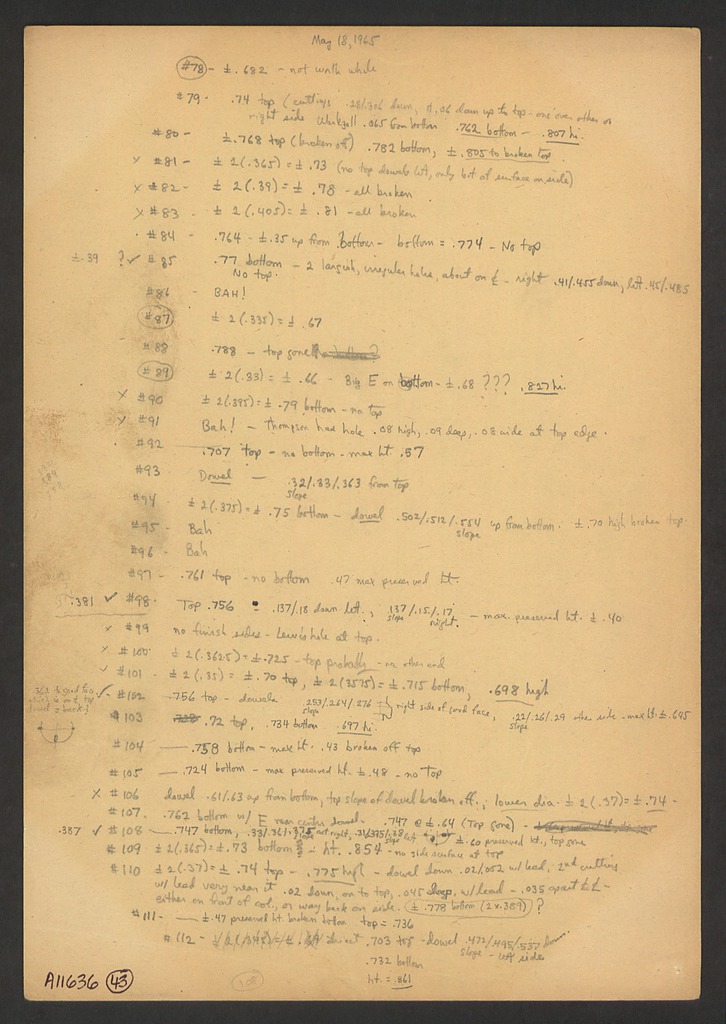 May 18, 1965
#78 - ±.682 - not worth while
#79 - .74 top (cuttings .28/.306 down, & .06 down up to top - one over other on
right side .065 from bottom .762 bottom - .807 hi.
#80 - ±.768 top (broken off) .782 bottom, ±.805 to broken top
x #81 - ± 2(.365) = ± .73 (no top dowels left, only bit of surface on side)
x #82 - ± 2(.39) = ± .78 - all broken
x #83 - ± 2(.405) = ± .81 - all broken
#84 - .764 - ±.35 up from bottom - bottom = .774 - No top
±.39 ? ✓ #85 .77 bottom - 2 largish, irregular holes, about on ℄ - right .41/.455 down, left .45/.485
No top.
#86 - BAH!
#87 ± 2(.335) = ± .67
#88 .788 - top gone
#89 ± 2(.33) = ± .66 - Big E on bottom - ±.68 ??? .827 hi.
x #90 ± 2(.395) = ± .79 bottom - no top
x #91 Bah! - Thompson has hole .08 high, .09 deep, .08 wide at top edge.
#92 .707 top - no bottom - max ht .57
#93 Dowel - .32/.33/.363 from top
slope
#94 - ± 2(.375) = ± .75 bottom - dowel .502/.512/.554 up from bottom. ± .70 high broken top.
slope
#95 - Bah
#96 - Bah
#97 - .761 top - no bottom .47 max preserved ht.
.381 ✓ #98 - Top .756 - .137/.18 down left, .137/.15/.17 right. - max. preserved ht. ± .40
slope
x #99 no finish sides - Lewis hole at top.
x #100 - ± 2(.3625) = ±.725 - top probably - no other end
x #101 - ± 2(.35) = ± .70 top, ± 2(.3575) = ±.715 bottom, .698 high
✓ #102 .756 top - dowels .253/.264/.276 right side of good face, .22/.26/.29 other side - max ht. ±.695
slope slope
#103 .72 top, .734 bottom .697 hi.
#104 - .758 bottom - max ht. .43 broken off top
#105 - .724 bottom - max preserved ht. ±.48 - no Top
x #106 dowel .61/.63 up from bottom, top slope of dowel broken off, lower dia. ± 2(.37) = ±.74 -
#107. .762 bottom w/ E near center dowel. .747 @ ±.64 (Top gone) -
.387 ✓ #108 - .747 bottom, ± .60 preserved ht., top gone
#109 ± 2(.365) = ±.73 bottom - ht. .854 - no side surface at top
#110 ± 2(.37) = ± .74 top - .775 high - dowel down .02/.052 w/ lead, 2nd cutting
w/ lead very near it .02 down, on to top, .045 deep, w/ lead - .035 apart ℄℄ -
either on front of col., or way back on side. (± .778 bottom (2x.389)) ?
#111 - ±.47 preserved ht. broken bottom top = .736
#112 - .703 top - dowel .472/.495/.537 down
slope - left side
.732 bottom
ht. = .861
A11636 43